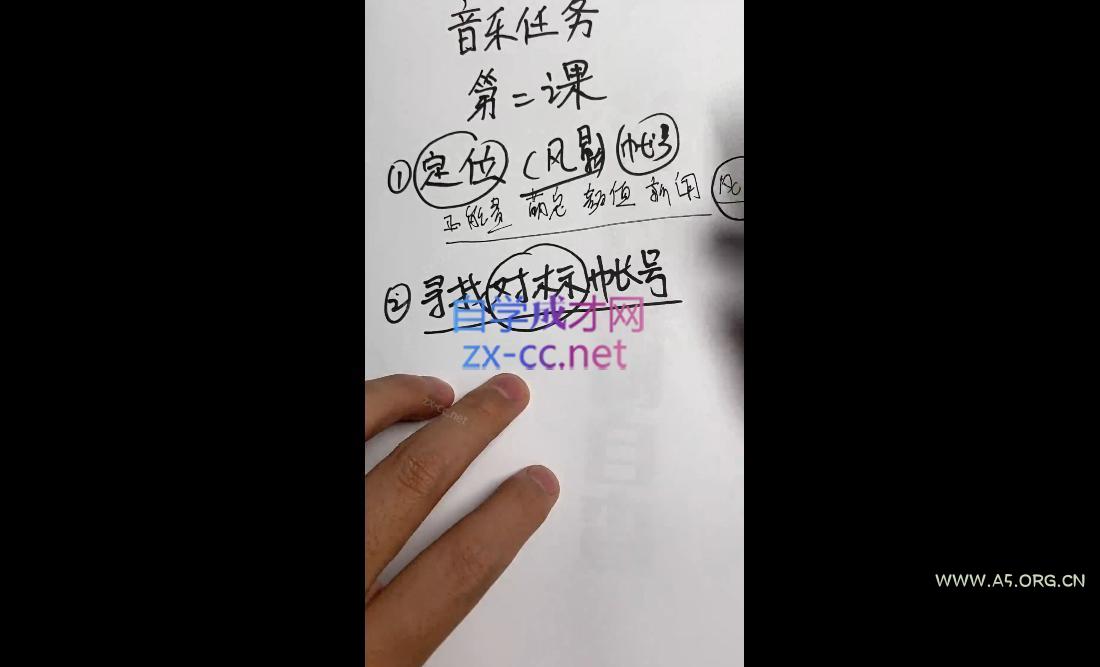 音乐任务
第二课
①定位(风景)帐号
正能量 萌宠 颜值 新闻 风
②寻找对标帐号
自学成才网
zx-cc.net
zx-cc.net
WWW.A5.ORG.CN